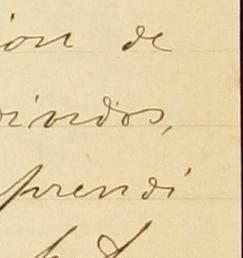 ion de
vindos,
prendi